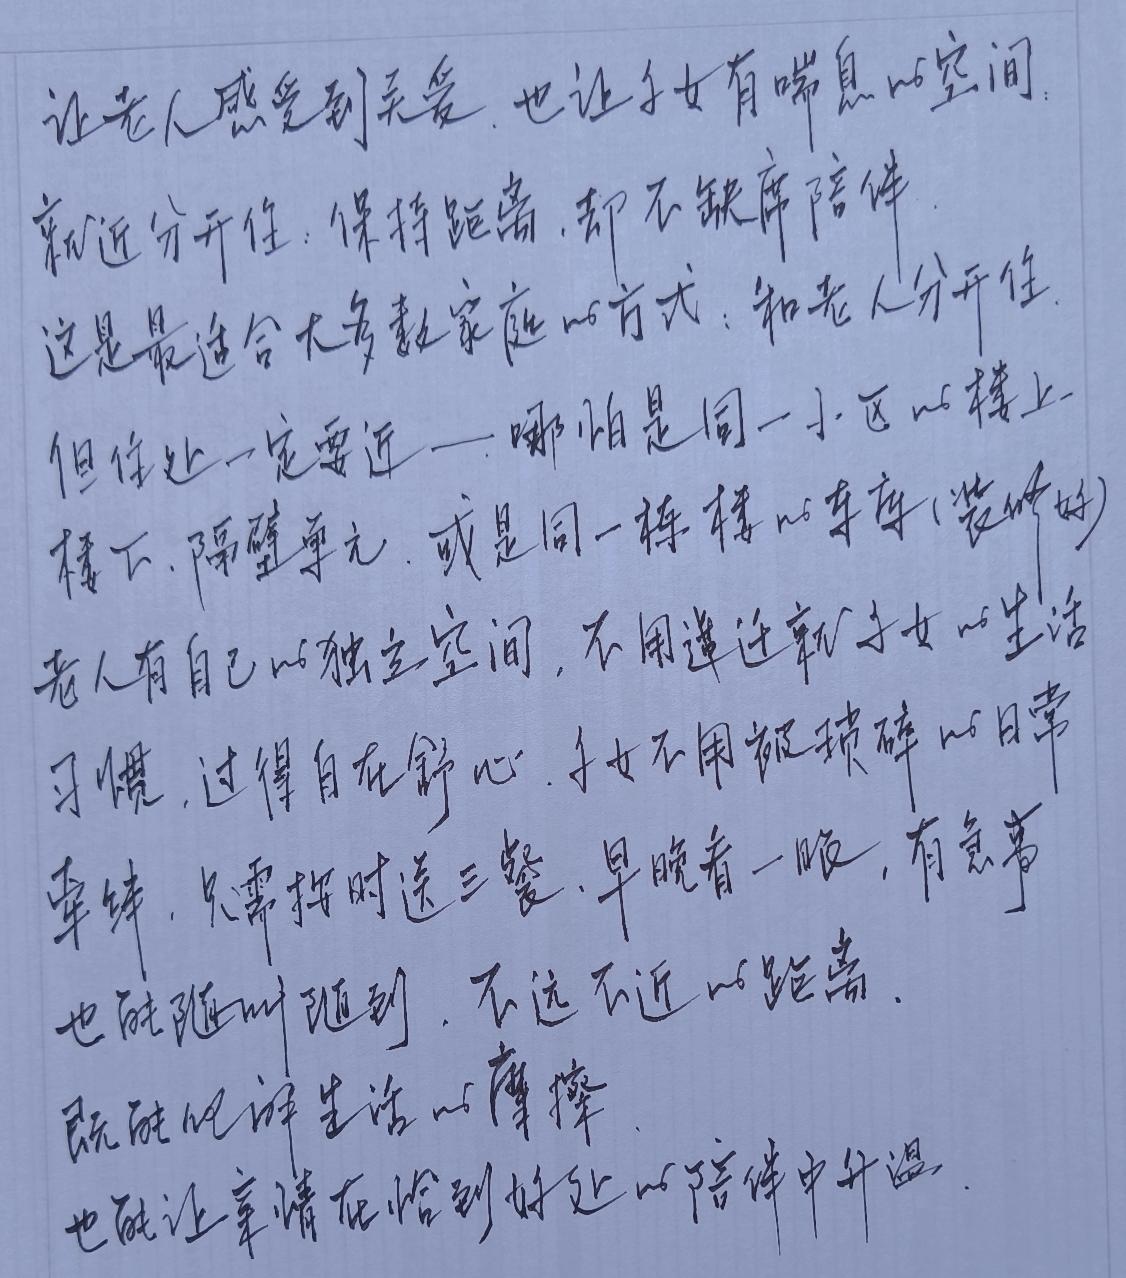 让老人感受到关爱、也让子女有喘息的空间.
就近分开住:保持距离,却不缺席陪伴.
这是最适合大多数家庭的方式:和老人分开住.
但住处一定要近一.哪怕是同一小区的楼上、
楼下、隔壁单元.或是同一栋楼的车库(装修好)
老人有自己的独立空间,不用迁就子女的生活
习惯,过得自在舒心.子女不用被琐碎的日常
牵绊,只需按时送三餐、早晚看一眼,有急事
也能随叫随到.不远不近的距离.
既能化解生活的摩擦.
也能让亲情在恰到好处的陪伴中升温.